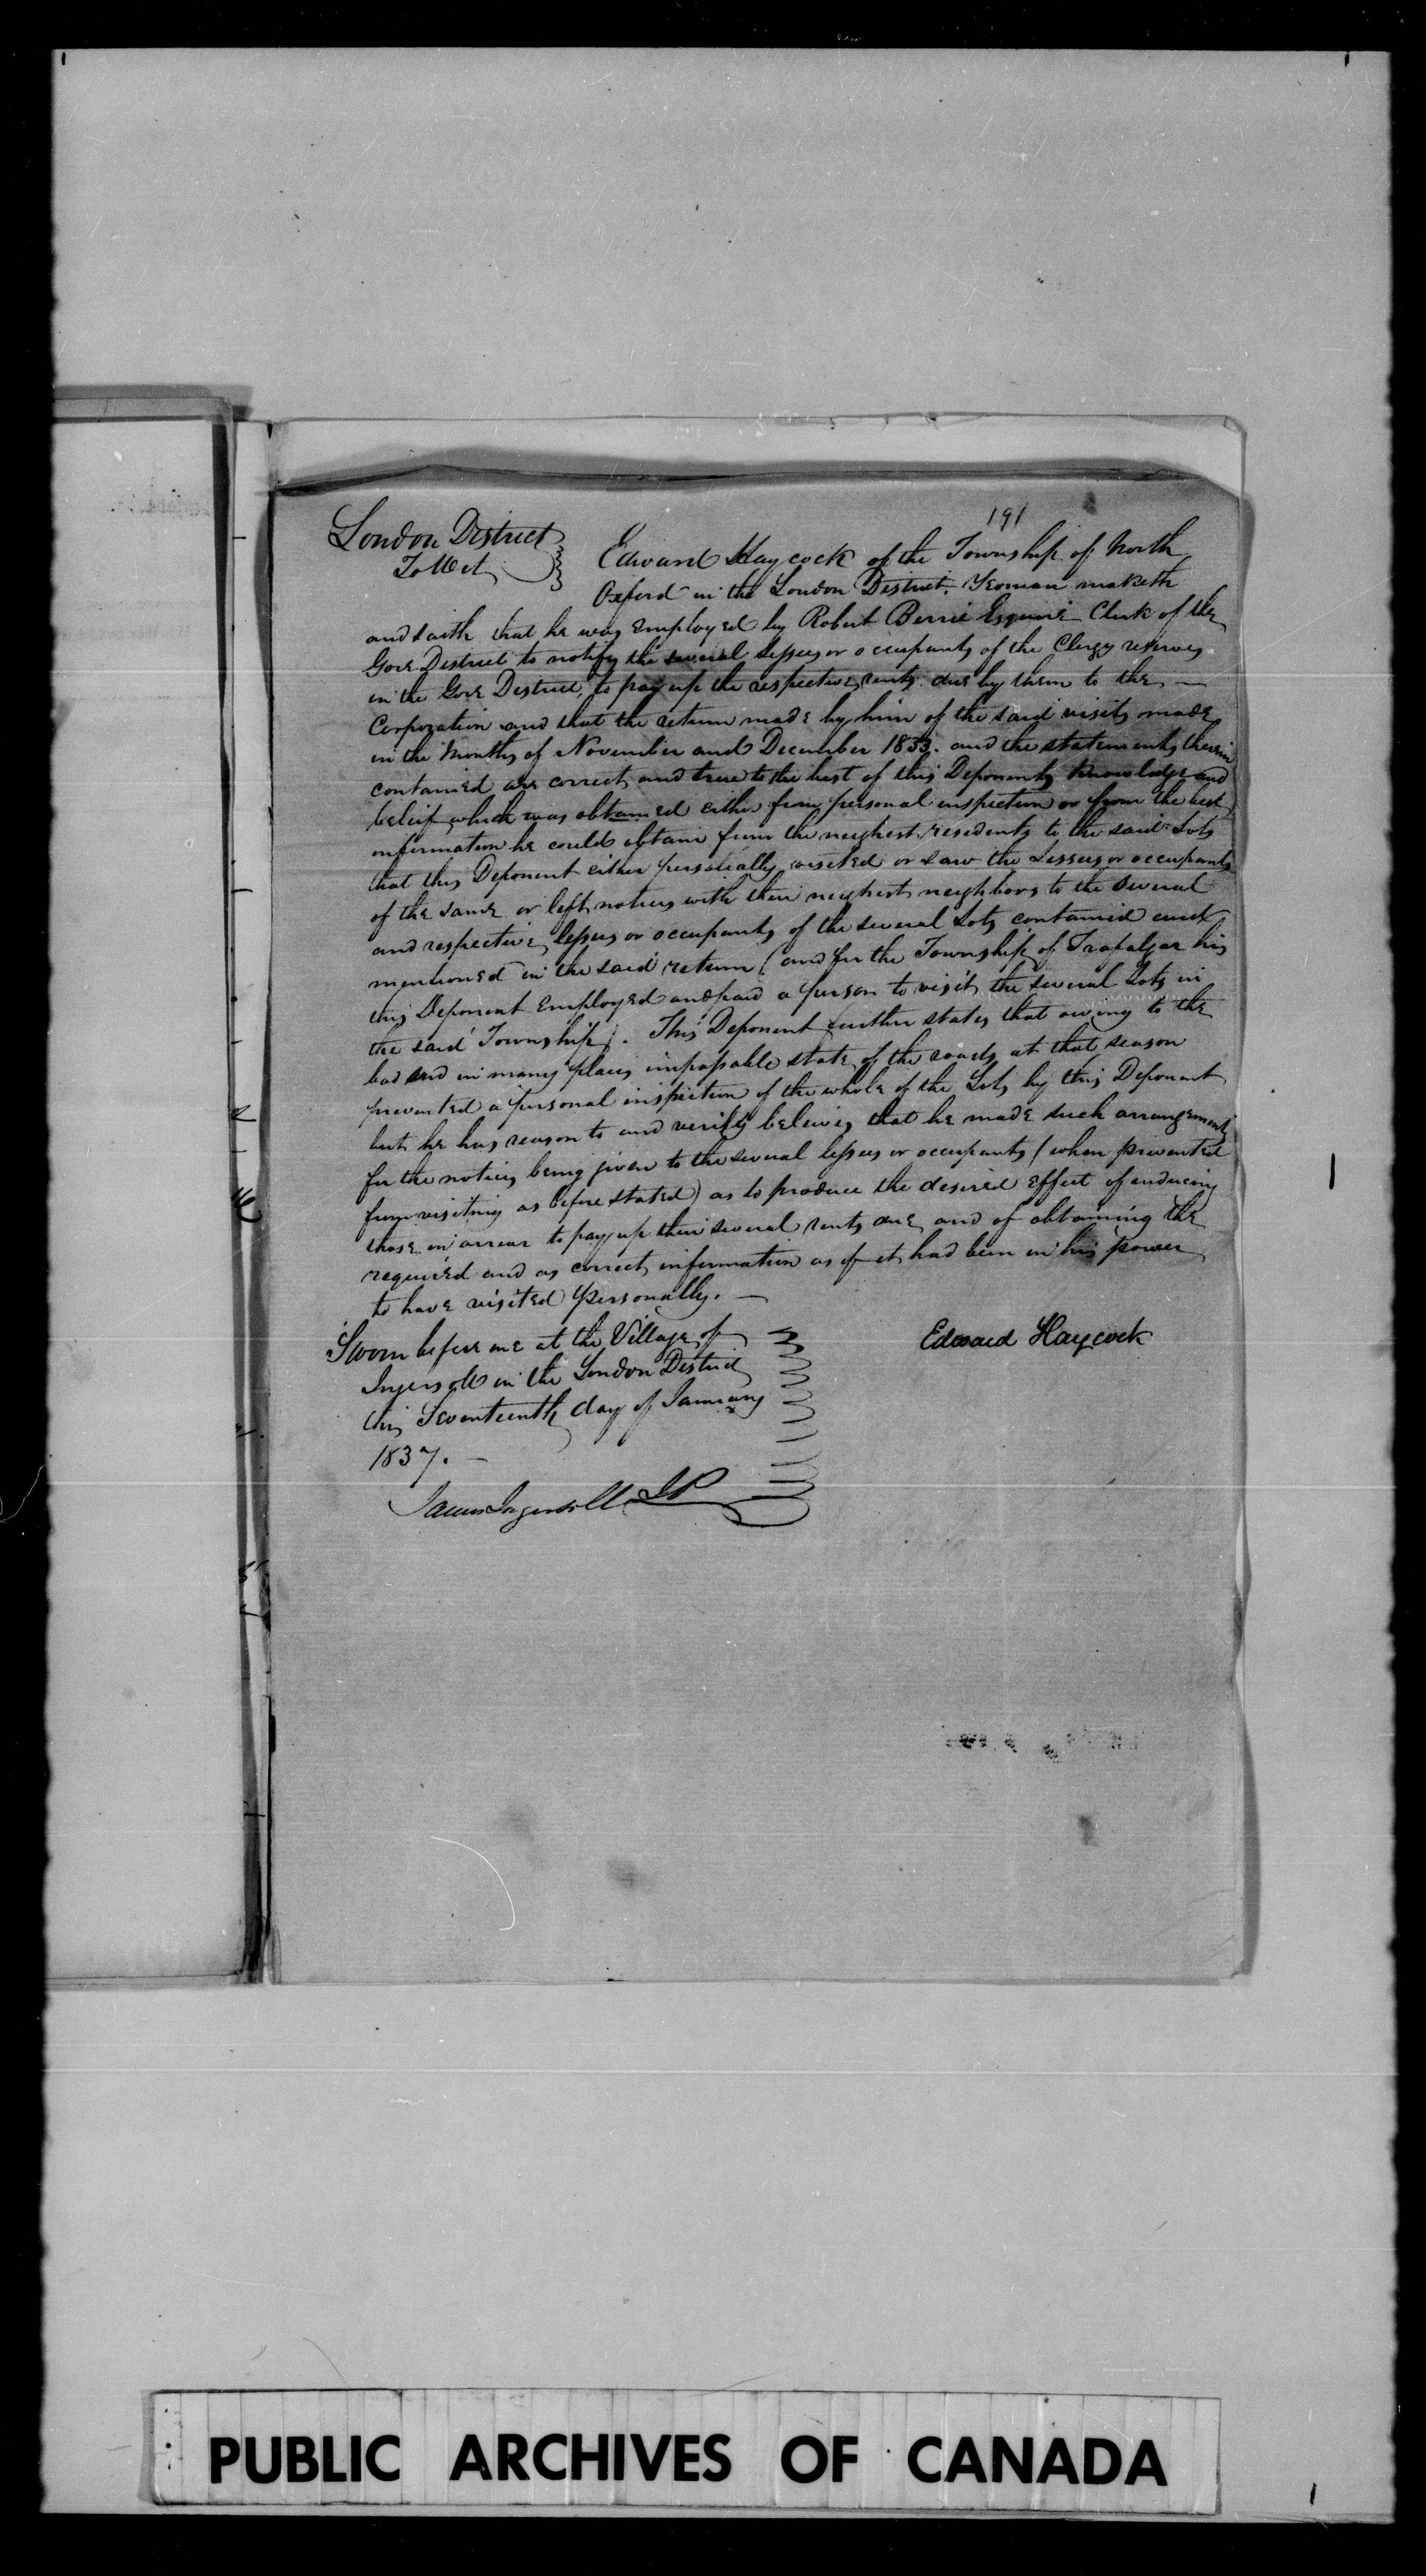 191
London District
To Wit
Edward Haycock of the Township of North
Oxford in the London District. Yeoman maketh
and saith that he was employed by Robert Berrie Esquire Clerk of the
Gore District to notify the several lessees or occupants of the Clergy reserves
in the Gore District, to pay up the respective rents due by them to the —
Corporation and that the return made by him of the said visits made
in the Months of November and December 1833. and the statements therein
contained are correct and true to the best of this Deponents knowledge and
belief which was obtained either from personal inspection or from the best
information he could obtain from the neighest residents to the said Lots
that this Deponent either personally visited or saw the Lessees or occupants
of the same or left notices with their neighest neighbors to the several
and respective lessees or occupants of the several Lots contained and
mentioned in the said return (and for the Township of Trafalgar his
this Deponent Employed and paid a person to visit the several Lots in
the said Township). This Deponent further states that owing to the
bad and in many places impassable state of the roads at that season
prevented a personal inspection of the whole of the Lots by this Deponent
but he has reason to and verily believes that he made such arrangements
for the notices being given to the several lessees or occupants (when prevented
from visiting as before stated) as to produce the desired effect of inducing
those in arrear to pay up their several rents due and of obtaining the
required and as correct information as if it had been in his power
to have visited personally. —
Sworn before me at the Village of
Ingersoll in the London District
this Seventeenth day of January
1837. —
Edward Haycock
James Ingersoll JP
PUBLIC ARCHIVES OF CANADA